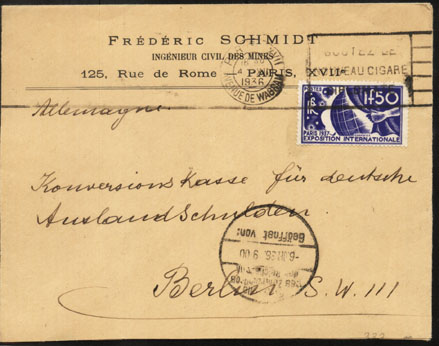 FRÉDÉRIC SCHMIDT
INGÉNIEUR CIVIL DES MINES
125, Rue de Rome - PARIS, XVIIe
1936
GOUTEZ LE
NOUVEAU CIGARE
POSTES
1F50
PARIS 1937
EXPOSITION INTERNATIONALE
Allemagne
Konversions Kasse für deutsche
Ausland Schulden
Geöffnet von:
9 00
Berlin S.W. 111